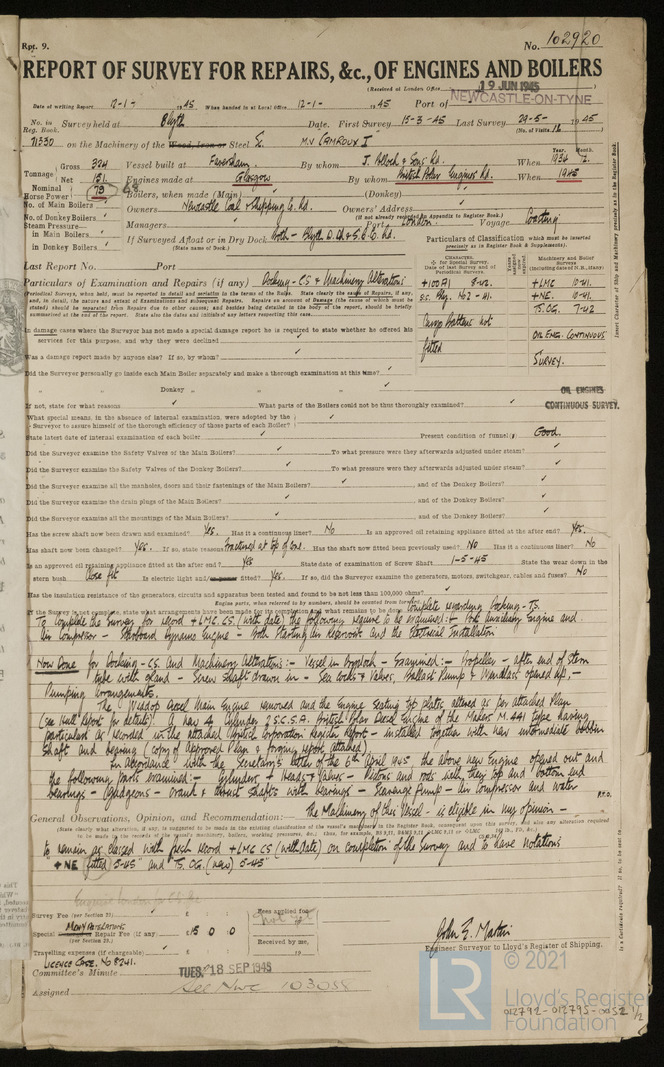 Rpt. 9.
No. 102920
REPORT OF SURVEY FOR REPAIRS, &c., OF ENGINES AND BOILERS
(Received at London Office 19 JUN 1945)
Date of writing Report 12-1- 1945 When handed in at Local Office 12-1- 1945 Port of NEWCASTLE-ON-TYNE
No. in Reg. Book. Survey held at Blyth Date, First Survey 15-3-45 Last Survey 29-5- 1945
(No. of Visits 12)
71330 on the Machinery of the Wood, Iron or Steel M.V. CAMROUX I
Tonnage Gross 324 Net 151
Vessel built at Faversham By whom J. Pollock & Sons Ld. When 1934
Year. Month.
Engines made at Glasgow By whom British Polar Engines Ld. When 1945
Nominal Horse Power 79
Boilers, when made (Main) (Donkey)
No. of Main Boilers
Owners Newcastle Coal & Shipping Co. Ld. Owners' Address
(if not already recorded in Appendix to Register Book.)
No. of Donkey Boilers
Managers Port London. Voyage Coasting
Steam Pressure— in Main Boilers
in Donkey Boilers
If Surveyed Afloat or in Dry Dock Both - Blyth D.D. & S.B. Co. Ld.
(State name of Dock.)
Particulars of Classification (which must be inserted precisely as in Register Book & Supplements).
Last Report No. Port
CHARACTER.
For Special Survey.
Date of last Survey and of Periodical Surveys.
Machinery and Boiler Surveys
(including dates of N.B., if any)
+100A1 8-42.
+LMC 10-41.
+NE. 10-41.
TS.OG. 7-42
Cargo Battens not fitted
OIL ENG. CONTINUOUS SURVEY.
OIL ENGINES CONTINUOUS SURVEY.
Insert Character of Ship and Machinery precisely as in the Register Book.
Particulars of Examination and Repairs (if any) Docking-CS & Machinery Alterations
In damage cases where the Surveyor has not made a special damage report he is required to state whether he offered his services for this purpose, and why they were declined
Was a damage report made by anyone else? If so, by whom?
Did the Surveyor personally go inside each Main Boiler separately and make a thorough examination at this time?
" " Donkey " " "
If not, state for what reasons What parts of the Boilers could not be thus thoroughly examined?
What special means, in the absence of internal examination, were adopted by the Surveyor to assure himself of the thorough efficiency of those parts of each Boiler?
State latest date of internal examination of each boiler Present condition of funnel(s) Good.
Did the Surveyor examine the Safety Valves of the Main Boilers? To what pressure were they afterwards adjusted under steam?
Did the Surveyor examine the Safety Valves of the Donkey Boilers? To what pressure were they afterwards adjusted under steam?
Did the Surveyor examine all the manholes, doors and their fastenings of the Main Boilers? and of the Donkey Boilers?
Did the Surveyor examine the drain plugs of the Main Boilers? and of the Donkey Boilers?
Did the Surveyor examine all the mountings of the Main Boilers? and of the Donkey Boilers?
Has the screw shaft now been drawn and examined? Yes. Has it a continuous liner? No Is an approved oil retaining appliance fitted at the after end? Yes.
Has shaft now been changed? Yes. If so, state reasons Fractured at top of cone. Has the shaft now fitted been previously used? No Has it a continuous liner? No
Is an approved oil retaining appliance fitted at the after end? Yes State date of examination of Screw Shaft 1-5-45 State the wear down in the
stern bush Close fit Is electric light and/or power fitted? Yes. If so, did the Surveyor examine the generators, motors, switchgear, cables and fuses? No
Has the insulation resistance of the generators, circuits and apparatus been tested and found to be not less than 100,000 ohms?
Engine parts, when referred to by numbers, should be counted from forward.
If the Survey is not complete, state what arrangements have been made for its completion and what remains to be done. Complete regarding Docking-TS.
To complete the Survey for record +LMC.CS. (with date) the following require to be examined:- Port Auxiliary Engine and
Air Compressor - Starboard Dynamo Engine - Both Starting Air Reservoirs and the Electrical Installation
Now Done for Docking-CS. and Machinery Alterations:- Vessel in Drydock - Examined:- Propeller - after end of stern
tube with gland - Screw shaft drawn in - Sea Cocks & Valves, Ballast Pump & Windlass opened up,-
Pumping arrangements.
The Widdop Diesel Main Engine removed and the Engine Seating top plates altered as per attached Plan
(see Hull Report for details). A new 4 Cylinder 2.S.C.S.A. British Polar Diesel Engine of the Makers M.441 type having
particulars as recorded in the attached British Corporation Register Report - installed together with new intermediate
shaft and bearing (copy of Approved Plan & forging report attached)
In accordance with the Secretary's letter of the 6th April 1945 the above new Engine opened out and
the following parts examined:- Cylinders & Heads & Valves - Pistons and rods with their top and bottom end
bearings - Gudgeons - Crank & thrust shafts with bearings - Scavenge Pump - Air Compressor and water
P.T.O.
General Observations, Opinion, and Recommendation:— The Machinery of this Vessel - is eligible in my opinion -
to remain as classed with fresh record +LMC CS (with date) on completion of the Survey and to have notations
+NE (fitted) 5-45" and "TS.OG. (new) 5-45"
Survey Fee (per Section 29) £ : :
Fees applied for
Special Mchy Alterations Repair Fee (if any) £15 0 0
(per Section 29.)
Received by me,
Travelling expenses (if chargeable) £ : :
LICENCE CASE. No 8241.
John E. Martin
Engineer Surveyor to Lloyd's Register of Shipping.
Committee's Minute TUES. 18 SEP 1945
Assigned See Nwc 103055
LR
© 2021
Lloyd's Register
Foundation
012792-012795-0052 1/2